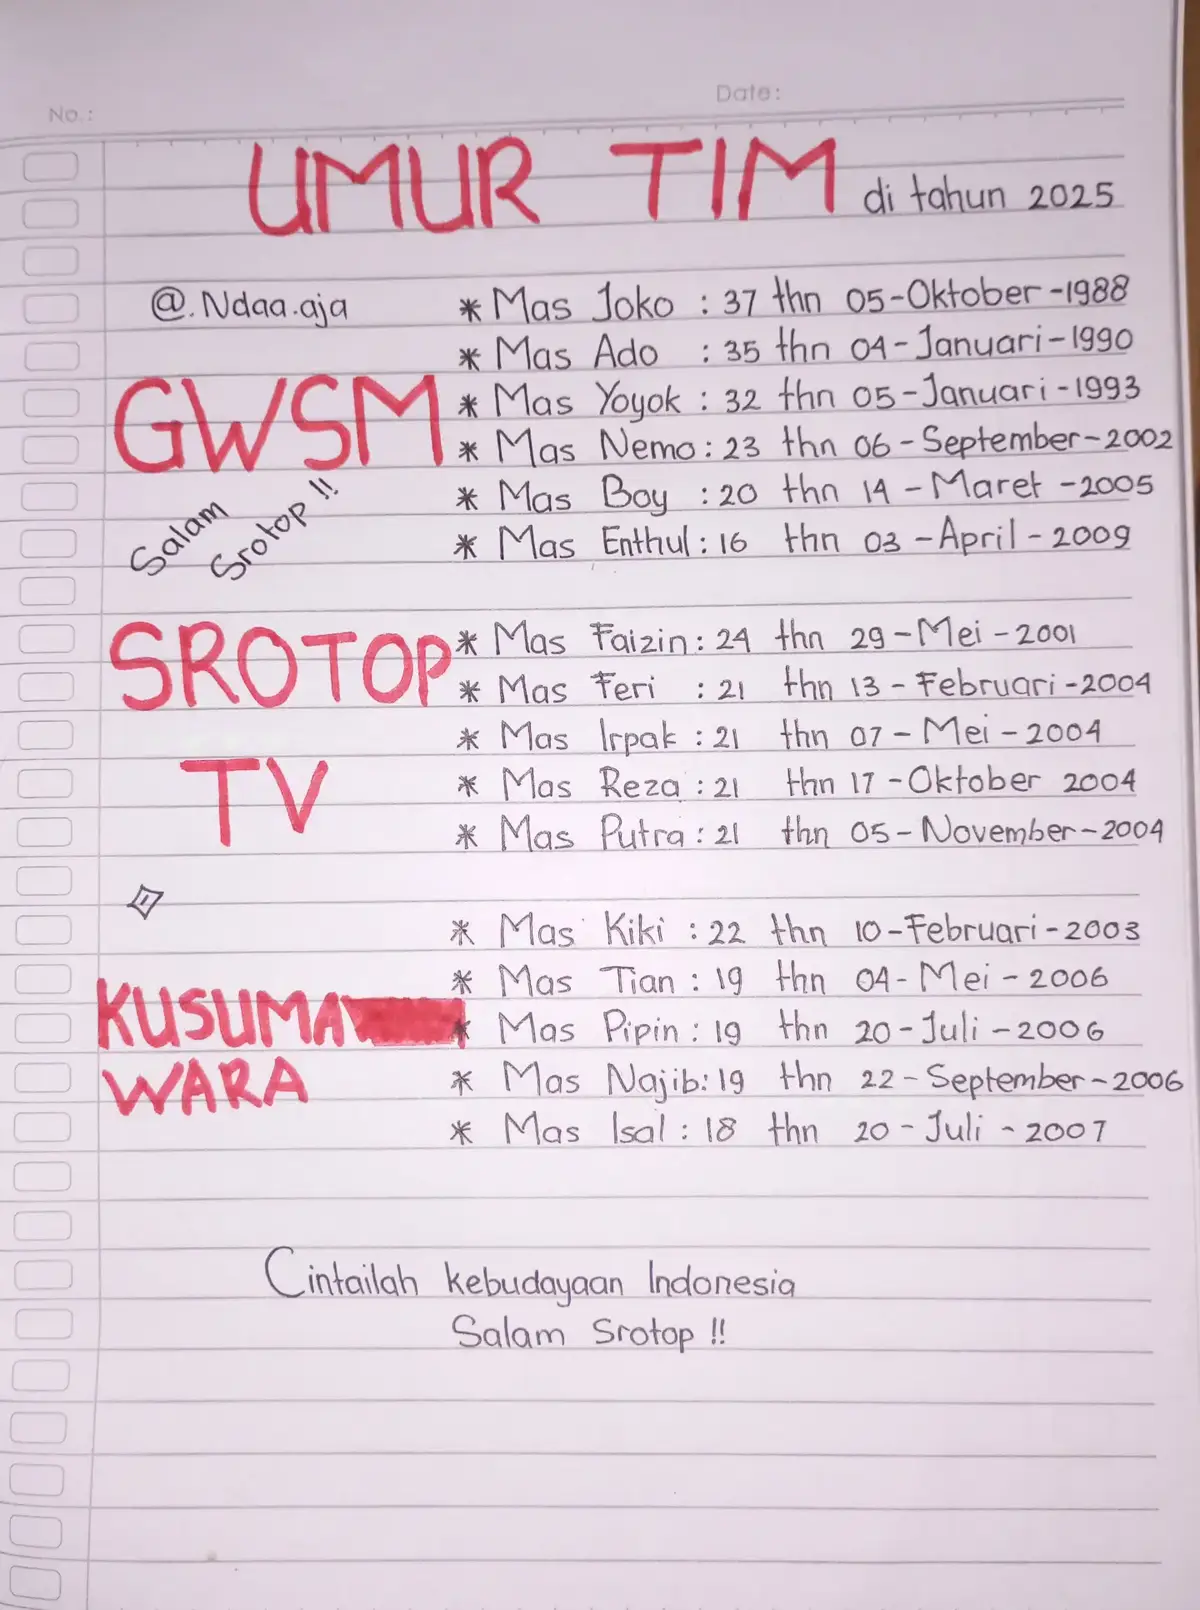 No.:
Date:
UMUR TIM di tahun 2025
@.Ndaa.aja
* Mas Joko : 37 thn 05-Oktober-1988
* Mas Ado : 35 thn 04-Januari-1990
GWSM
* Mas Yoyok : 32 thn 05-Januari-1993
* Mas Nemo : 23 thn 06-September-2002
Salam
Srotop !!
* Mas Boy : 20 thn 14-Maret-2005
* Mas Enthul : 16 thn 03-April-2009
SROTOP
TV
* Mas Faizin : 24 thn 29-Mei-2001
* Mas Feri : 21 thn 13-Februari-2004
* Mas Irpak : 21 thn 07-Mei-2004
* Mas Reza : 21 thn 17-Oktober 2004
* Mas Putra : 21 thn 05-November-2004
KUSUMA
WARA
* Mas Kiki : 22 thn 10-Februari-2003
* Mas Tian : 19 thn 04-Mei-2006
* Mas Pipin : 19 thn 20-Juli-2006
* Mas Najib : 19 thn 22-September-2006
* Mas Isal : 18 thn 20-Juli-2007
Cintailah kebudayaan Indonesia
Salam Srotop !!